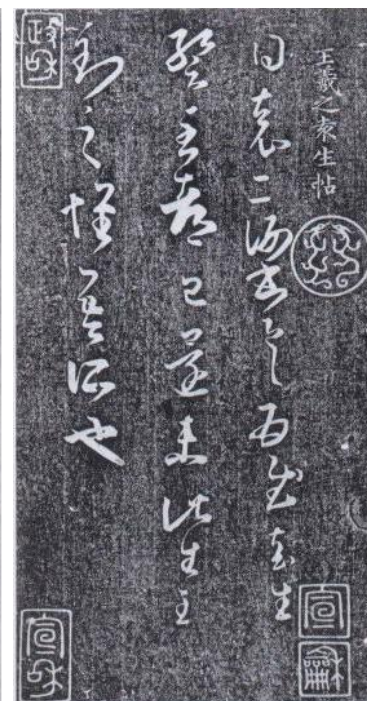 王羲之袁生帖
得袁二謝書具為慰袁生
暫至都已還未此生至
到之懷吾所也
宣
龢
政和
宣和